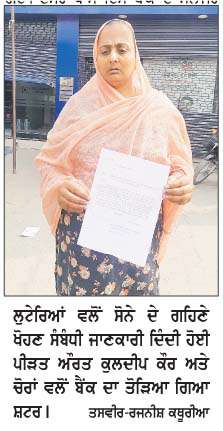 ਲੁਟੇਰਿਆਂ ਵਲੋਂ ਸੋਨੇ ਦੇ ਗਹਿਣੇ
ਖੋਹਣ ਸੰਬੰਧੀ ਜਾਣਕਾਰੀ ਦਿੰਦੀ ਹੋਈ
ਪੀੜਤ ਔਰਤ ਕੁਲਦੀਪ ਕੌਰ ਅਤੇ
ਚੋਰਾਂ ਵਲੋਂ ਬੈਂਕ ਦਾ ਤੋੜਿਆ ਗਿਆ
ਸ਼ਟਰ। ਤਸਵੀਰ-ਰਜਨੀਸ਼ ਕਥੂਰੀਆ